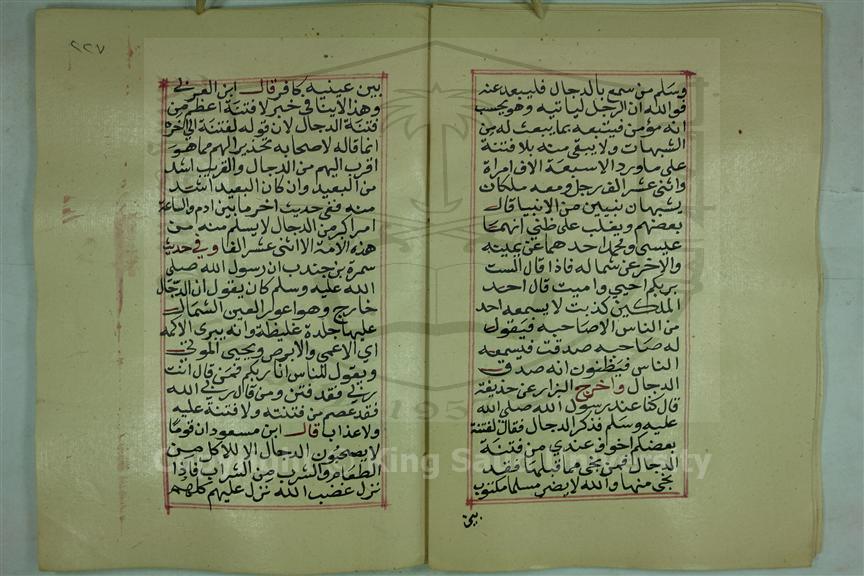 وسلم من سمع بالدجال فليبعد عنه
فوالله ان الرجل لياتيه وهو يحسب
انه مؤمن فيتبعه بما يبعث له من
الشبهات ولا يبقى منه بلا فتنة
على ما ورد الا سبعة الاف امراة
واثنى عشر الف رجل ومعه ملكان
يشبهان نبيين من الانبيا قال
بعضهم ويغلب على ظني انهما
عيسى ومحمد احدهما عن يمينه
والاخر عن شماله فاذا قال الست
بربكم احيي واميت قال احد
الملكين كذبت لا يسمعه احد
من الناس الا صاحبه فيقول
له صاحبه صدقت فيسمعه
الناس فيظنون انه صدق
الدجال واخرج البزار عن حذيفة
قال كنا عند رسول الله صلى الله
عليه وسلم فذكر الدجال فقال لفتنة
بعضكم اخوف عندي من فتنة
الدجال فمن نجى مما قبلها فقد
نجى منها والله لا يضر مسلما مكتوب
بين
٢٢٧
بين عينيه كافر قال ابن العربي
وهذا لا ينافي خبر لا فتنة اعظم من
فتنة الدجال لان قوله لفتنة الى اخره
انما قاله لاصحابه تحذيرا لهم مما هو
اقرب اليهم من الدجال والقريب اشد
من البعيد وان كان البعيد اشد
منه ففي حديث اخر ما بين ادم والساعة
امر اكبر من الدجال لا يسلم منه من
هذه الامة الا اثنى عشر الفا وفي حديث
سمرة بن جندب ان رسول الله صلى
الله عليه وسلم كان يقول ان الدجال
خارج وهو اعور العين الشمال
عليها جلدة غليظة وانه يبرى الاكمه
اي الاعمى والابرص ويحيي الموتى
ويقول للناس انا ربكم فمن قال انت
ربي فقد فتن ومن قال ربي الله
فقد عصم من فتنته ولا فتنة عليه
ولا عذاب قال ابن مسعود ان قوما
لا يصحبون الدجال الا للاكل من
الطعام والشرب من الشراب فاذا
نزل غضب الله نزل عليهم كلهم
Copyright © King Saud University
195